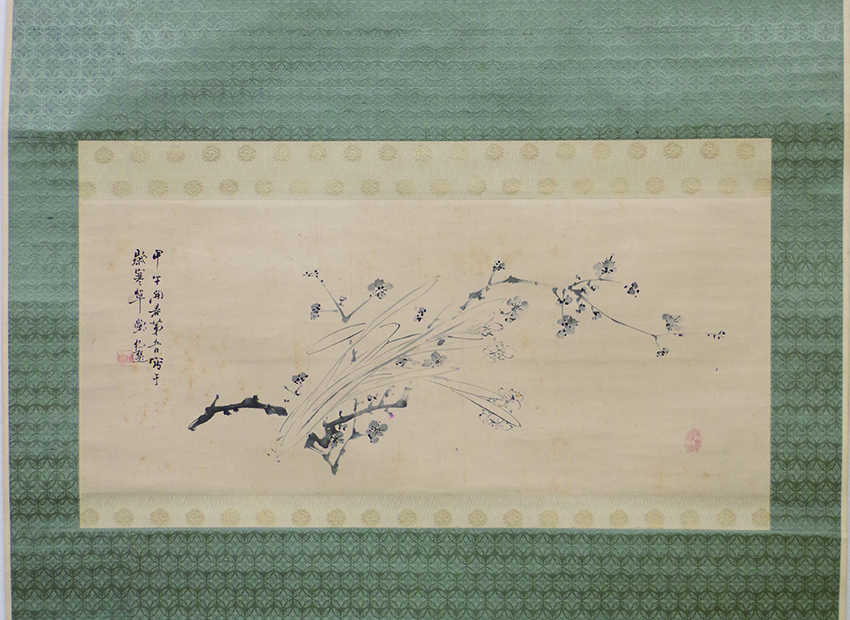 甲午開春第五日寫于
歲寒草堂